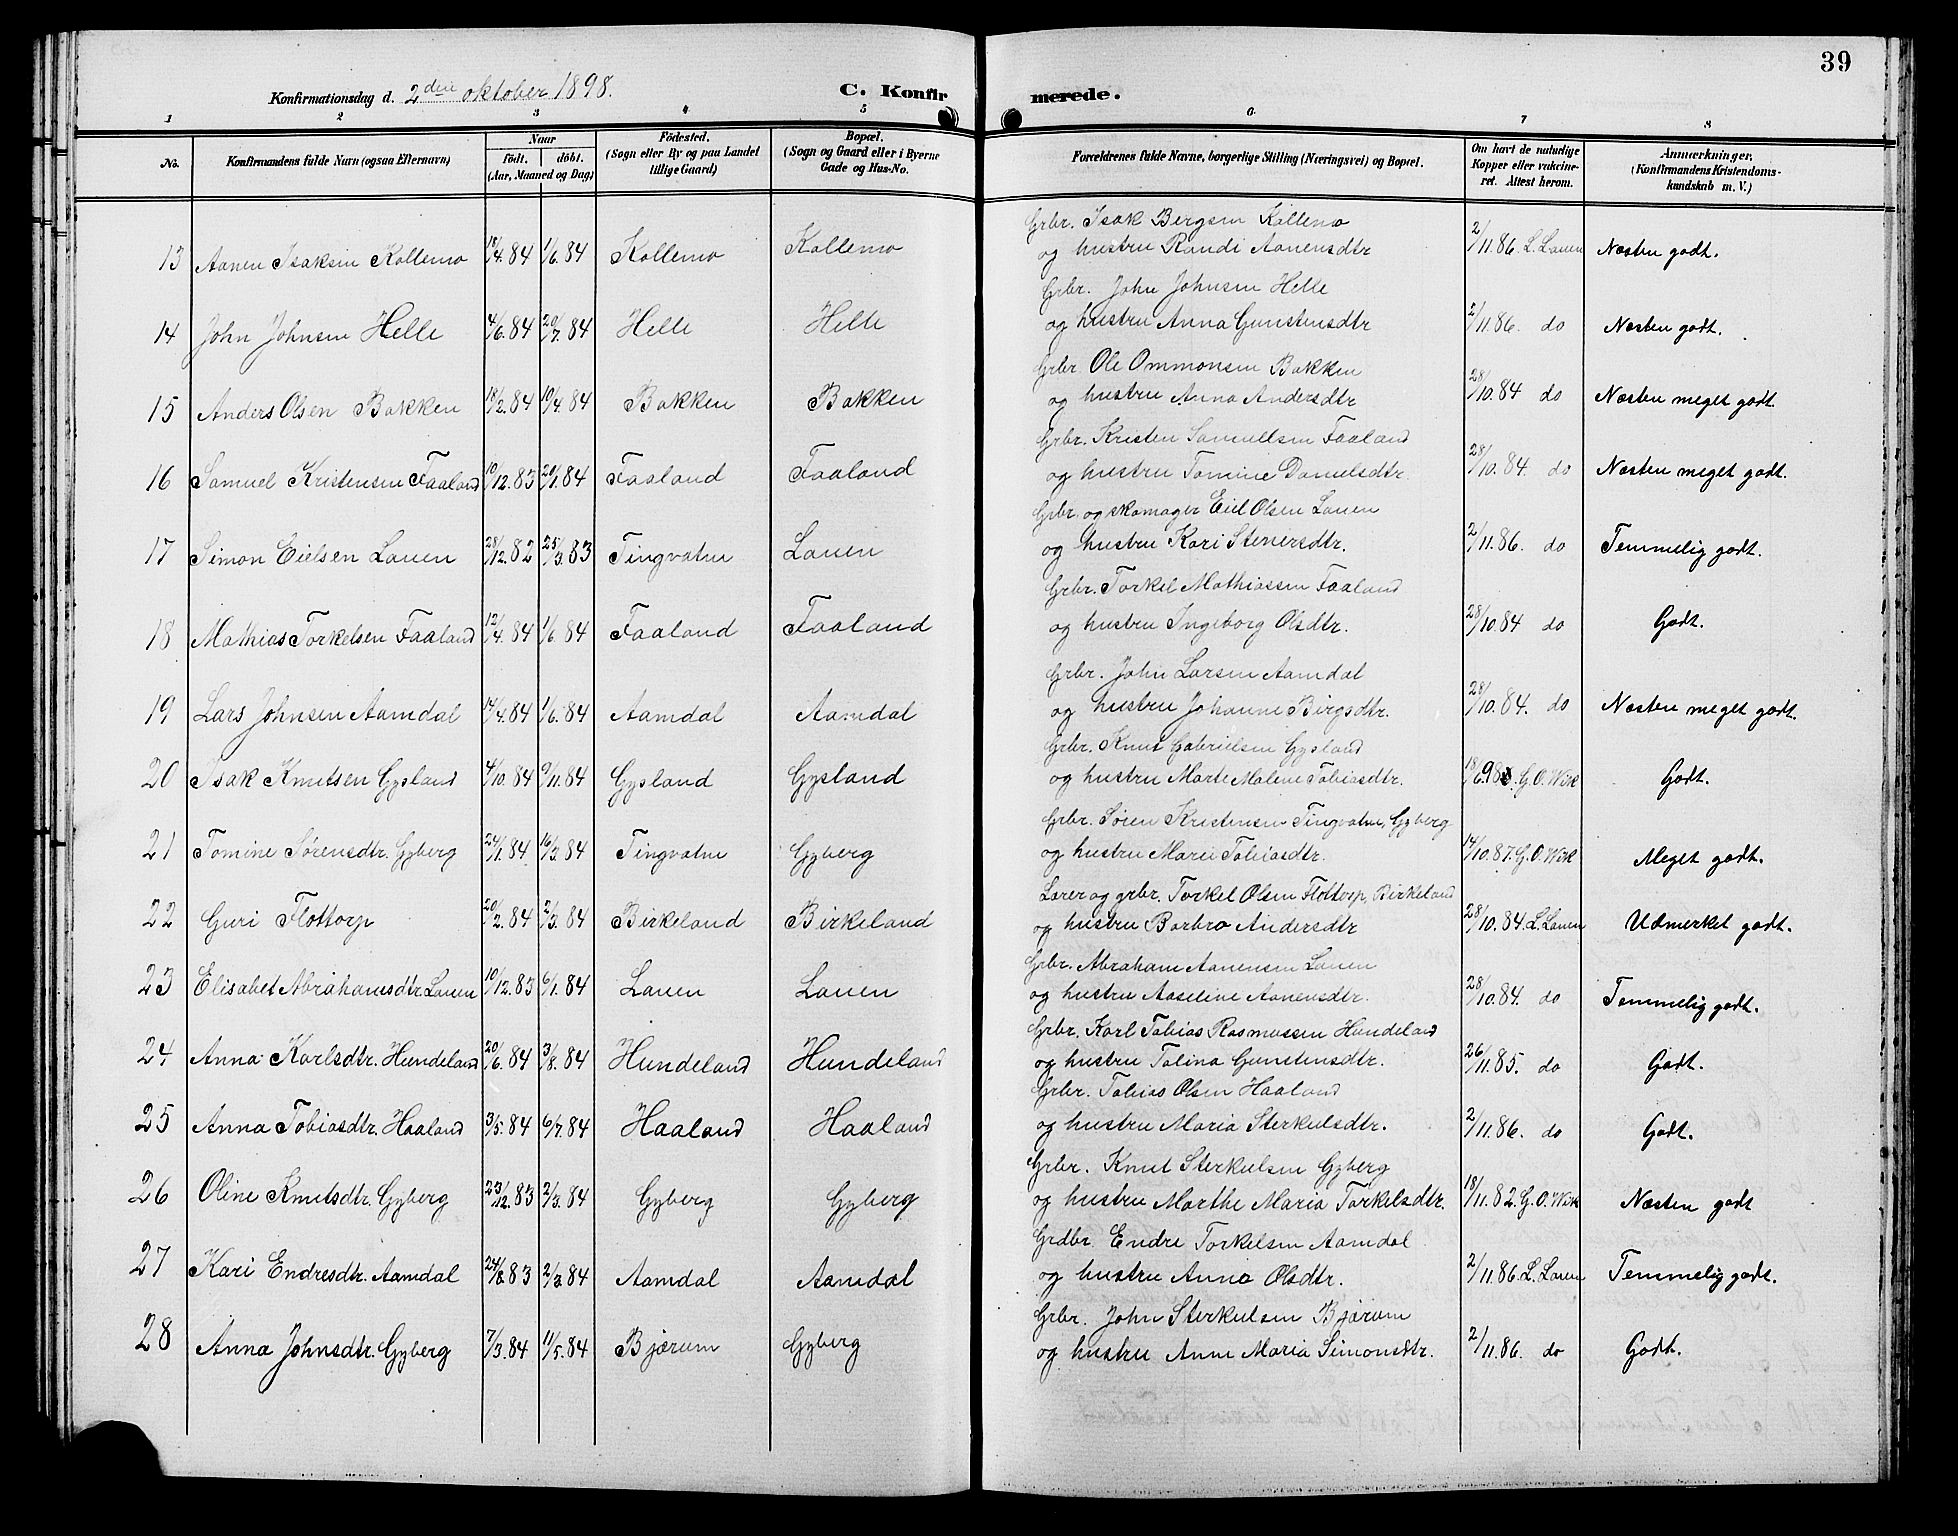 39
Konfirmationsdag d. 2den oktober 1898. C. Konfirmerede.
1 2 3 4 5 6 7 8
No. Konfirmandens fulde Navn (ogsaa Efternavn) Naar födt. döbt. (Aar, Maaned og Dag) Födested. (Sogn eller By og paa Landet tillige Gaard) Bopæl. (Sogn og Gaard eller i Byerne Gade og Hus-No. Forældrenes fulde Navne, borgerlige Stilling (Næringsvei) og Bopæl. Om havt de naturlige Kopper eller vakcineret. Attest herom. Anmærkninger. (Konfirmandens Kristendomskundskab m. V.)
Grbr. Isak Bergsen Kollemo
13 Aanen Isaksen Kollemo 18/4.84 1/6.84 Kollemo Kollemo og hustru Randi Aanensdtr 2/11.86. L. Lauen Næsten godt.
Grbr. John Johnsen Helle
14 John Johnsen Helle 4/6.84 20/7.84 Helle Helle og hustru Anna Gunstensdtr 2/11.86. do Næsten godt.
Grbr Ole Ommonsen Bakken
15 Anders Olsen Bakken 18/2.84 10/4.84 Bakken Bakken og hustru Anna Andersdtr 28/10.84 do Næsten meget godt.
Grbr. Kristen Samuelsen Faaland
16 Samuel Kristensen Faaland 10/12.83 20/1.84 Faaland Faaland og hustru Tomine Danielsdtr. 28/10.84. do Næsten meget godt.
Grbr. og skomager Eiel Olsen Lauen
17 Simon Eielsen Lauen 28/12.82 25/3.83 Tingvatne Lauen og hustru Kari Steniersdtr. 2/11.86. do Temmelig godt.
Grbr. Torkel Mathiassen Faaland
18 Mathias Torkelsen Faaland 12/4.84 1/6.84 Faaland Faaland og hustru Ingeborg Olsdtr. 28/10.84 do Godt.
Grbr. John Larsen Aamdal
19 Lars Johnsen Aamdal 14/4.84 1/6.84 Aamdal Aamdal og hustru Johanne Birgsdtr. 28/10.84. do Næsten meget godt.
Grbr. Knut Gabrielsen Gysland
20 Isak Knutsen Gysland 4/10.84 9/11.84 Gysland Gysland og hustru Marte Malene Tobiasdtr. 18/6.98. G.O. Wik Godt.
Grbr. Søren Kristensen Tingvatne, Gyberg
21 Tomine Sørensdtr. Gyberg 24/1.84 16/3.84 Tingvatne Gyberg og hustru Maren Tobiasdtr. 14/10.87. G.O. Wik Meget godt.
Lærer og grbr. Torkel Olsen Flottorp, Birkeland
22 Guri Flottorp 20/2.84 2/3.84 Birkeland Birkeland og hustru Barbro Andersdtr 28/10.84. L. Lauen Udmerket godt.
Grbr. Abraham Aanensen Lauen
23 Elisabet Abrahamsdtr Lauen 10/12.83 6/1.84 Lauen Lauen og hustru Aaseline Aanensdtr. 28/10.84. do Temmelig godt.
Grbr. Karl Tobias Rasmussen Hundeland
24 Anna Karlsdtr. Hundeland 20/6.84 3/8.84 Hundeland Hundeland og hustru Talina Gunstensdtr. 26/11.85. do Godt.
Grbr. Tobias Olsen Haaland
25 Anna Tobiasdtr. Haaland 3/5.84 6/7.84 Haaland Haaland og hustru Maria Sterkulsdtr. 2/11.86. do Godt.
Grbr. Knut Sterkulsen Gyberg
26 Oline Knutsdtr. Gyberg 23/12.83 2/3.84 Gyberg Gyberg og hustru Marthe Maria Torkelsdtr. 18/11.82. G.O. Wik Næsten godt
Grdbr. Endre Torkelsen Aamdal
27 Kari Endresdtr. Aamdal 24/8.83 2/3.84 Aamdal Aamdal og hustru Anna Olsdtr. 2/11.86. L. Lauen Temmelig godt.
Grbr. John Sterkulsen Bjærum
28 Anna Johnsdtr. Gyberg 7/3.84 11/5.84 Bjærum Gyberg og hustru Anne Maria Simonsdtr. 2/11.86. do Godt.